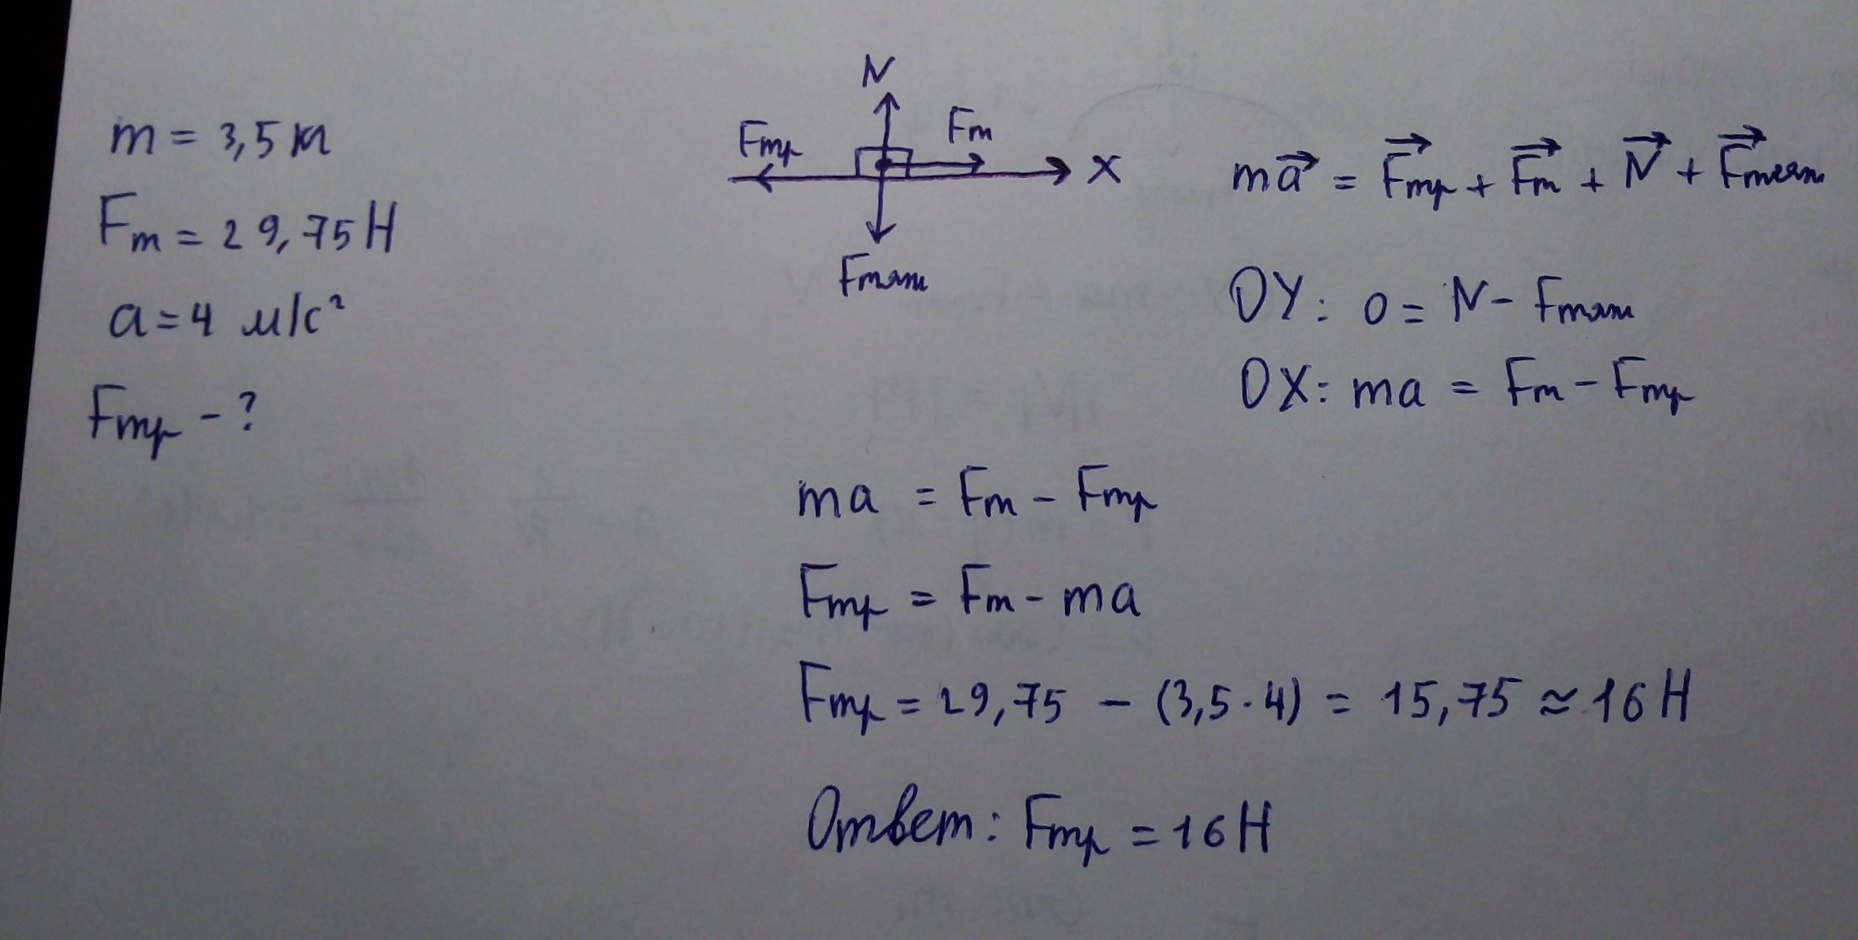 m = 3,5 кг
Fт = 29,75 Н
a = 4 м/с²
Fтр - ?
N
Fтр
Fт
X
Fтяж
ma⃗ = F⃗тр + F⃗т + N⃗ + F⃗тяж
OY: 0 = N - Fтяж
OX: ma = Fт - Fтр
ma = Fт - Fтр
Fтр = Fт - ma
Fтр = 29,75 - (3,5 · 4) = 15,75 ≈ 16 Н
Ответ: Fтр = 16 Н